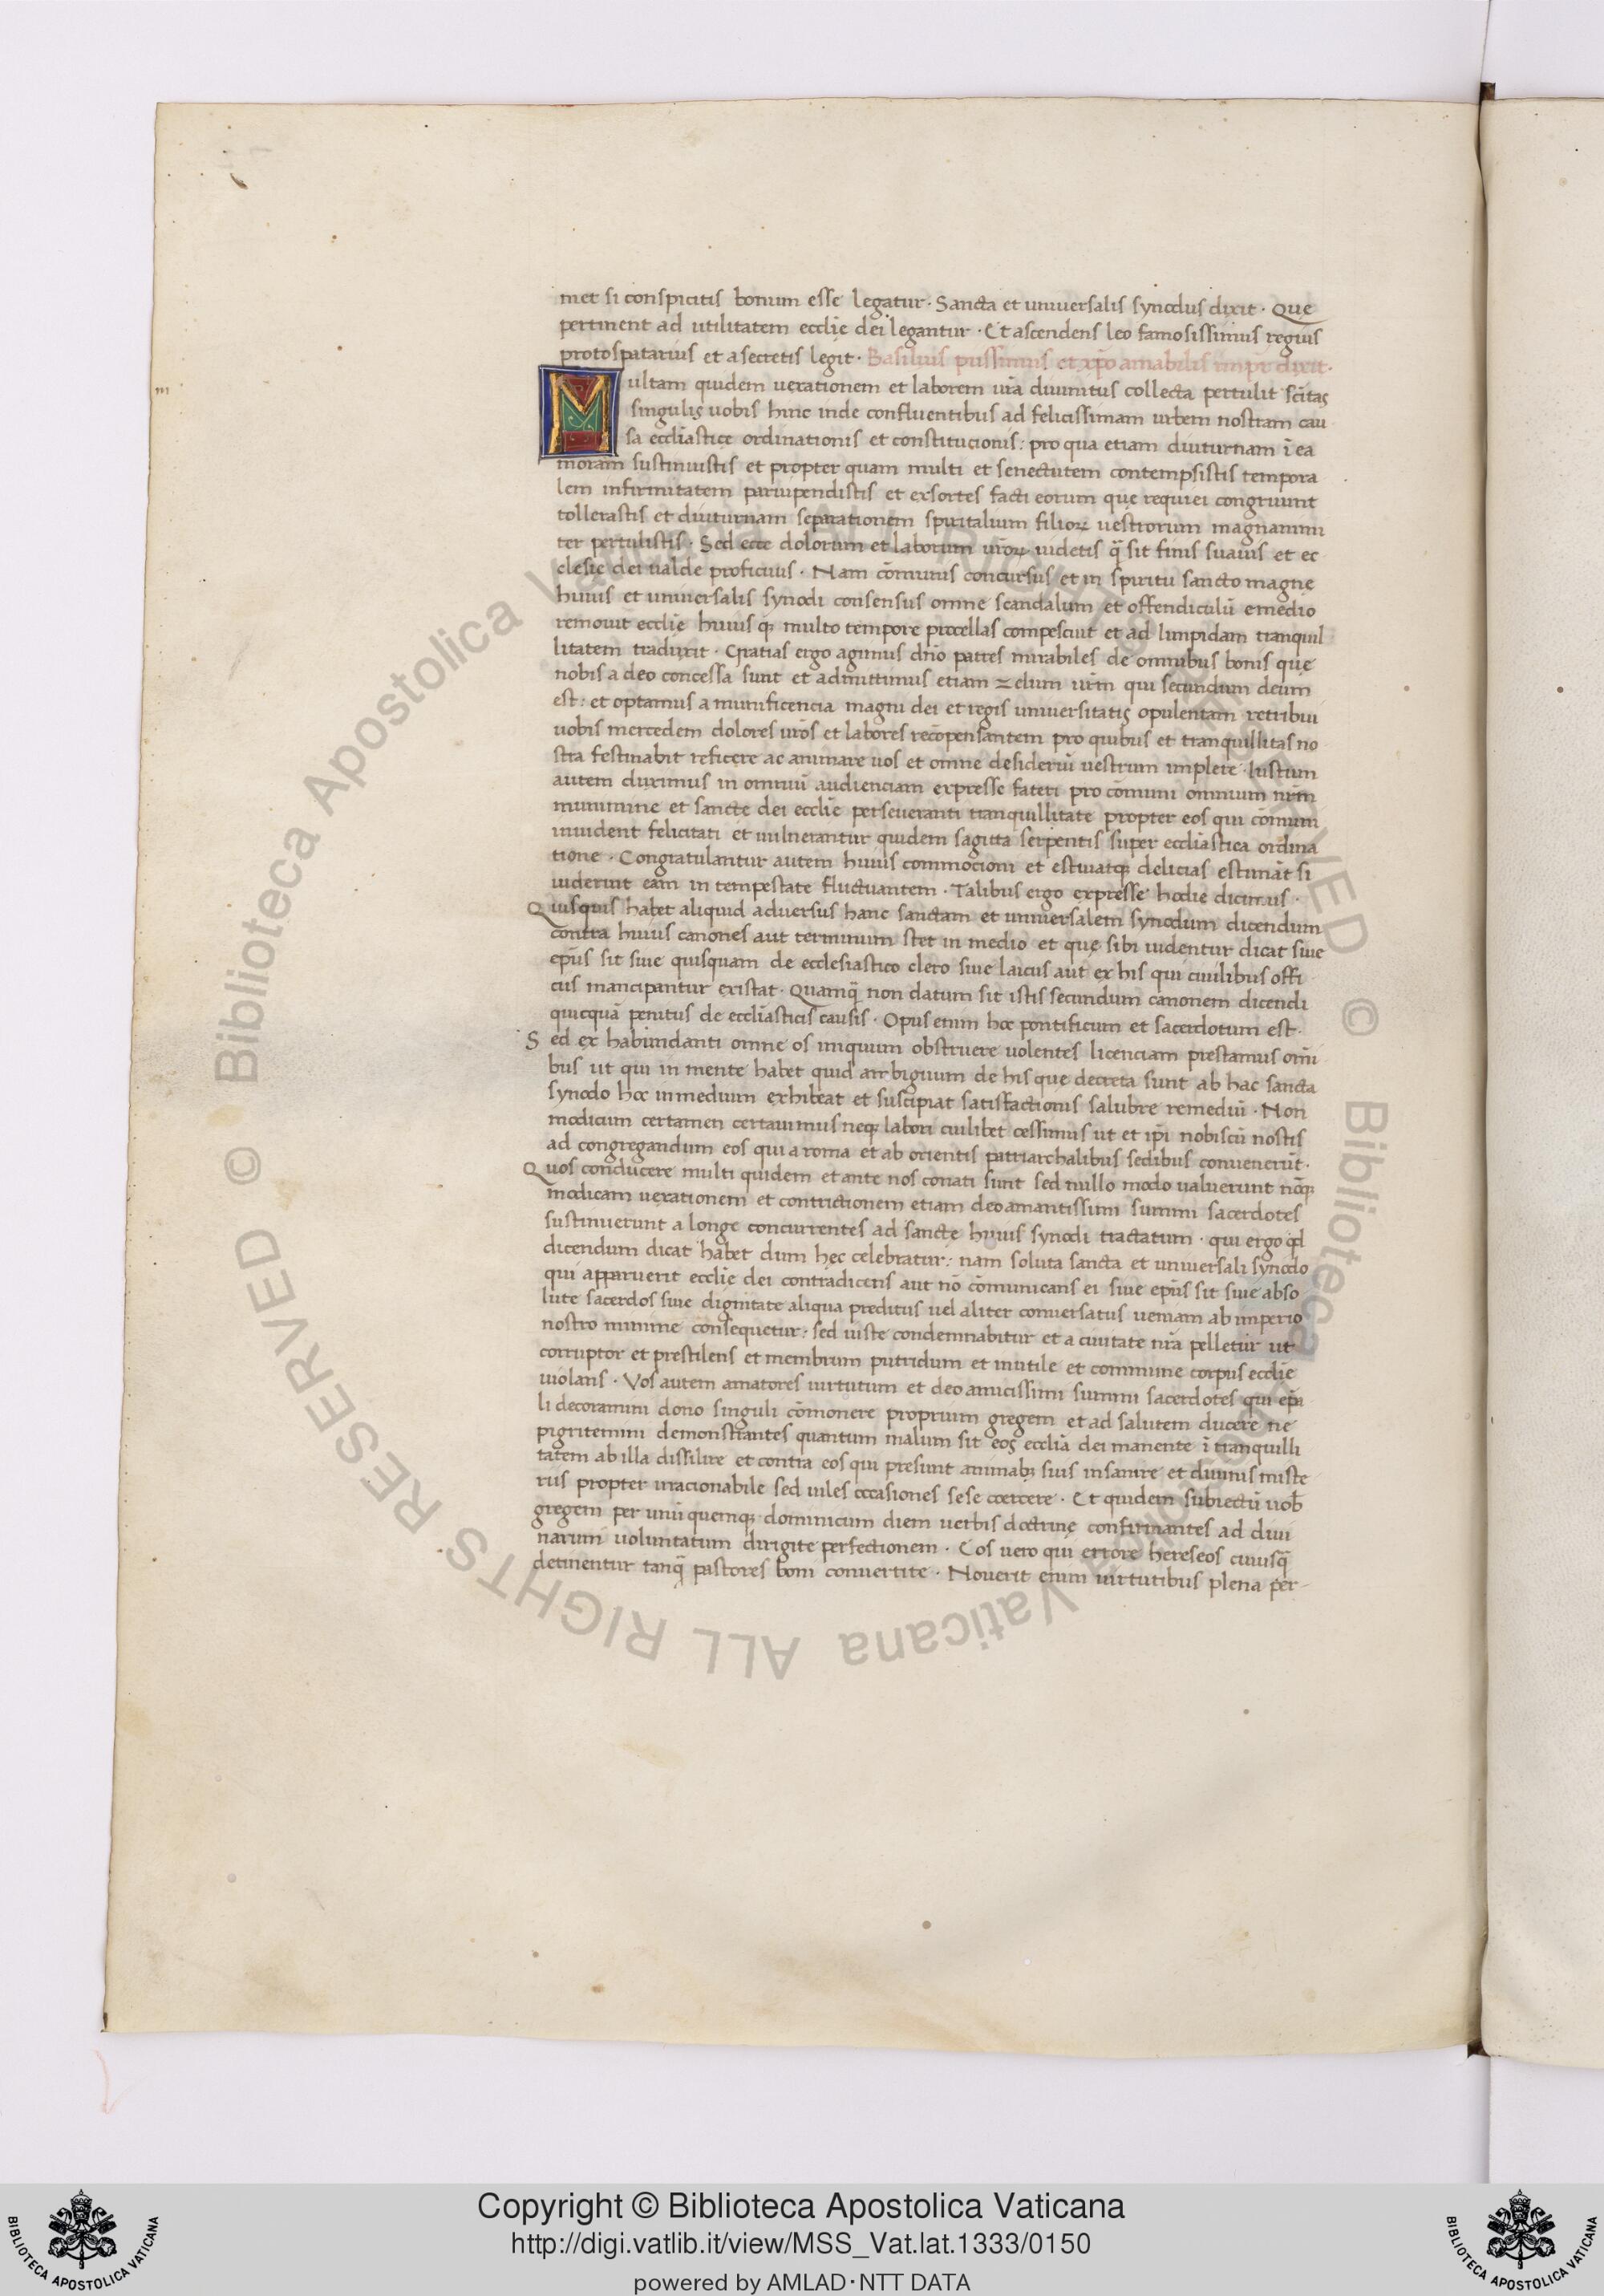 met si conspicitis bonum esse legatur · Sancta et universalis synodus dixit · Que
pertinent ad utilitatem ecclie dei legantur · Et ascendens leo famosissimus regius
protospatarius et a secretis legit · Basilius piissimus et xp̄o amabilis impr̄ dixit ·
m
Multam quidem vexationem et laborem vr̄a divinitus collecta pertulit sc̄itas
singulis vobis hinc inde confluentibus ad felicissimam urbem nostram cau
sa eccl̄iastice ordinationis et constitucionis : pro qua etiam diuturnam ī ea
moram sustinuistis et propter quam multi et senectutem contempsistis tempora
lem infirmitatem parvipendistis et exsortes facti eorum que requiei congruunt
tollerastis et diuturnam separationem spiritalium filioꝝ vestrorum magnanimi
ter pertulistis · Sed ecce dolorum et laborum vr̄oꝝ videtis q̄ sit finis suavis et ec
clesie dei valde proficuus · Nam cōmunis concursus et in spiritu sancto magne
huius et universalis synodi consensus omne scandalum et offendiculū e medio
removit eccl̄ie huius qꝫ multo tempore procellas compescuit et ad limpidam tranquil
litatem traduxit · Gratias ergo agimus dn̄o patres mirabiles de omnibus bonis que
nobis a deo concessa sunt et admittimus etiam zelum vr̄m qui secundum deum
est : et optamus a munificencia magni dei et regis universitatis opulentam retribui
vobis mercedem dolores vr̄os et labores recōpensantem pro quibus et tranquillitas no
stra festinabit reficere ac animare vos et omne desideriū vestrum implere · Iustum
autem duximus in omniū audienciam expresse fateri pro cōmuni omnium nr̄m
munimine et sancte dei eccl̄ie perseveranti tranquillitate propter eos qui cōmuni
invident felicitati et vulnerantur quidem sagitta serpentis super eccl̄iastica ordina
tione · Congratulantur autem huius commocioni et estuatqꝫ delicias estimāt si
viderint eam in tempestate fluctuantem · Talibus ergo expresse hodie dicimus ·
Quisquis habet aliquid adversus hanc sanctam et universalem synodum dicendum
contra huius canones aut terminum stet in medio et que sibi videntur dicat sive
ep̄us sit sive quisquam de ecclesiastico clero sive laicus aut ex his qui civilibus offi
ciis mancipantur existat · Quamq̄ non datum sit istis secundum canonem dicendi
quicquā penitus de eccl̄iasticis causis · Opus enim hoc pontificum et sacerdotum est ·
Sed ex habundanti omne os iniquum obstruere volentes licenciam prestamus om̄i
bus ut qui in mente habet quid ambiguum de his que decreta sunt ab hac sancta
synodo hoc in medium exhibeat et suscipiat satisfactionis salubre remediū · Non
modicum certamen certavimus neqꝫ labori cuilibet cessimus ut et ip̄i nobiscū nostis
ad congregandum eos qui a roma et ab orientis patriarchalibus sedibus convenerūt ·
Quos conducere multi quidem et ante nos conati sunt sed nullo modo valuerunt nōqꝫ
modicam vexationem et contrictionem etiam deo amantissimi summi sacerdotes
sustinuerunt a longe concurrentes ad sancte huius synodi tractatum · qui ergo qd̄
dicendum dicat habet dum hec celebratur : nam soluta sancta et universali synodo
qui apparuerit eccl̄ie dei contradicens aut nō cōmunicans ei sive ep̄us sit sive abso
lute sacerdos sive dignitate aliqua preditus vel aliter conversatus veniam ab imperio
nostro minime consequetur : sed iuste condemnabitur et a civitate nr̄a pelletur ut
corruptor et prestilens et membrum putridum et inutile et commune corpus eccl̄ie
violans · Vos autem amatores virtutum et deo amicissimi summi sacerdotes qui ep̄a
li decoramini dono singuli cōmonere proprium gregem et ad salutem ducere ne
pigritemini demonstrantes quantum malum sit eos eccl̄ia dei manente ī tranquilli
tatem ab illa dissilire et contra eos qui presunt animabꝫ suis insanire et divinis miste
riis propter irracionabile sed viles occasiones sese coercere · Et quidem subiectū vob̄
gregem per unū quemqꝫ dominicum diem verbis doctrine confirmantes ad divi
narum voluntatum dirigite perfectionem · Eos vero qui errore hereseos cuiusq̄
detinentur tanq̄ pastores boni convertite · Noverit enim virtutibus plena per-
Copyright © Biblioteca Apostolica Vaticana
http://digi.vatlib.it/view/MSS_Vat.lat.1333/0150
powered by AMLAD·NTT DATA
BIBLIOTECA APOSTOLICA VATICANA
BIBLIOTECA APOSTOLICA VATICANA
© Biblioteca Apostolica Vaticana ALL RIGHTS RESERVED
© Biblioteca Apostolica Vaticana ALL RIGHTS RESERVED